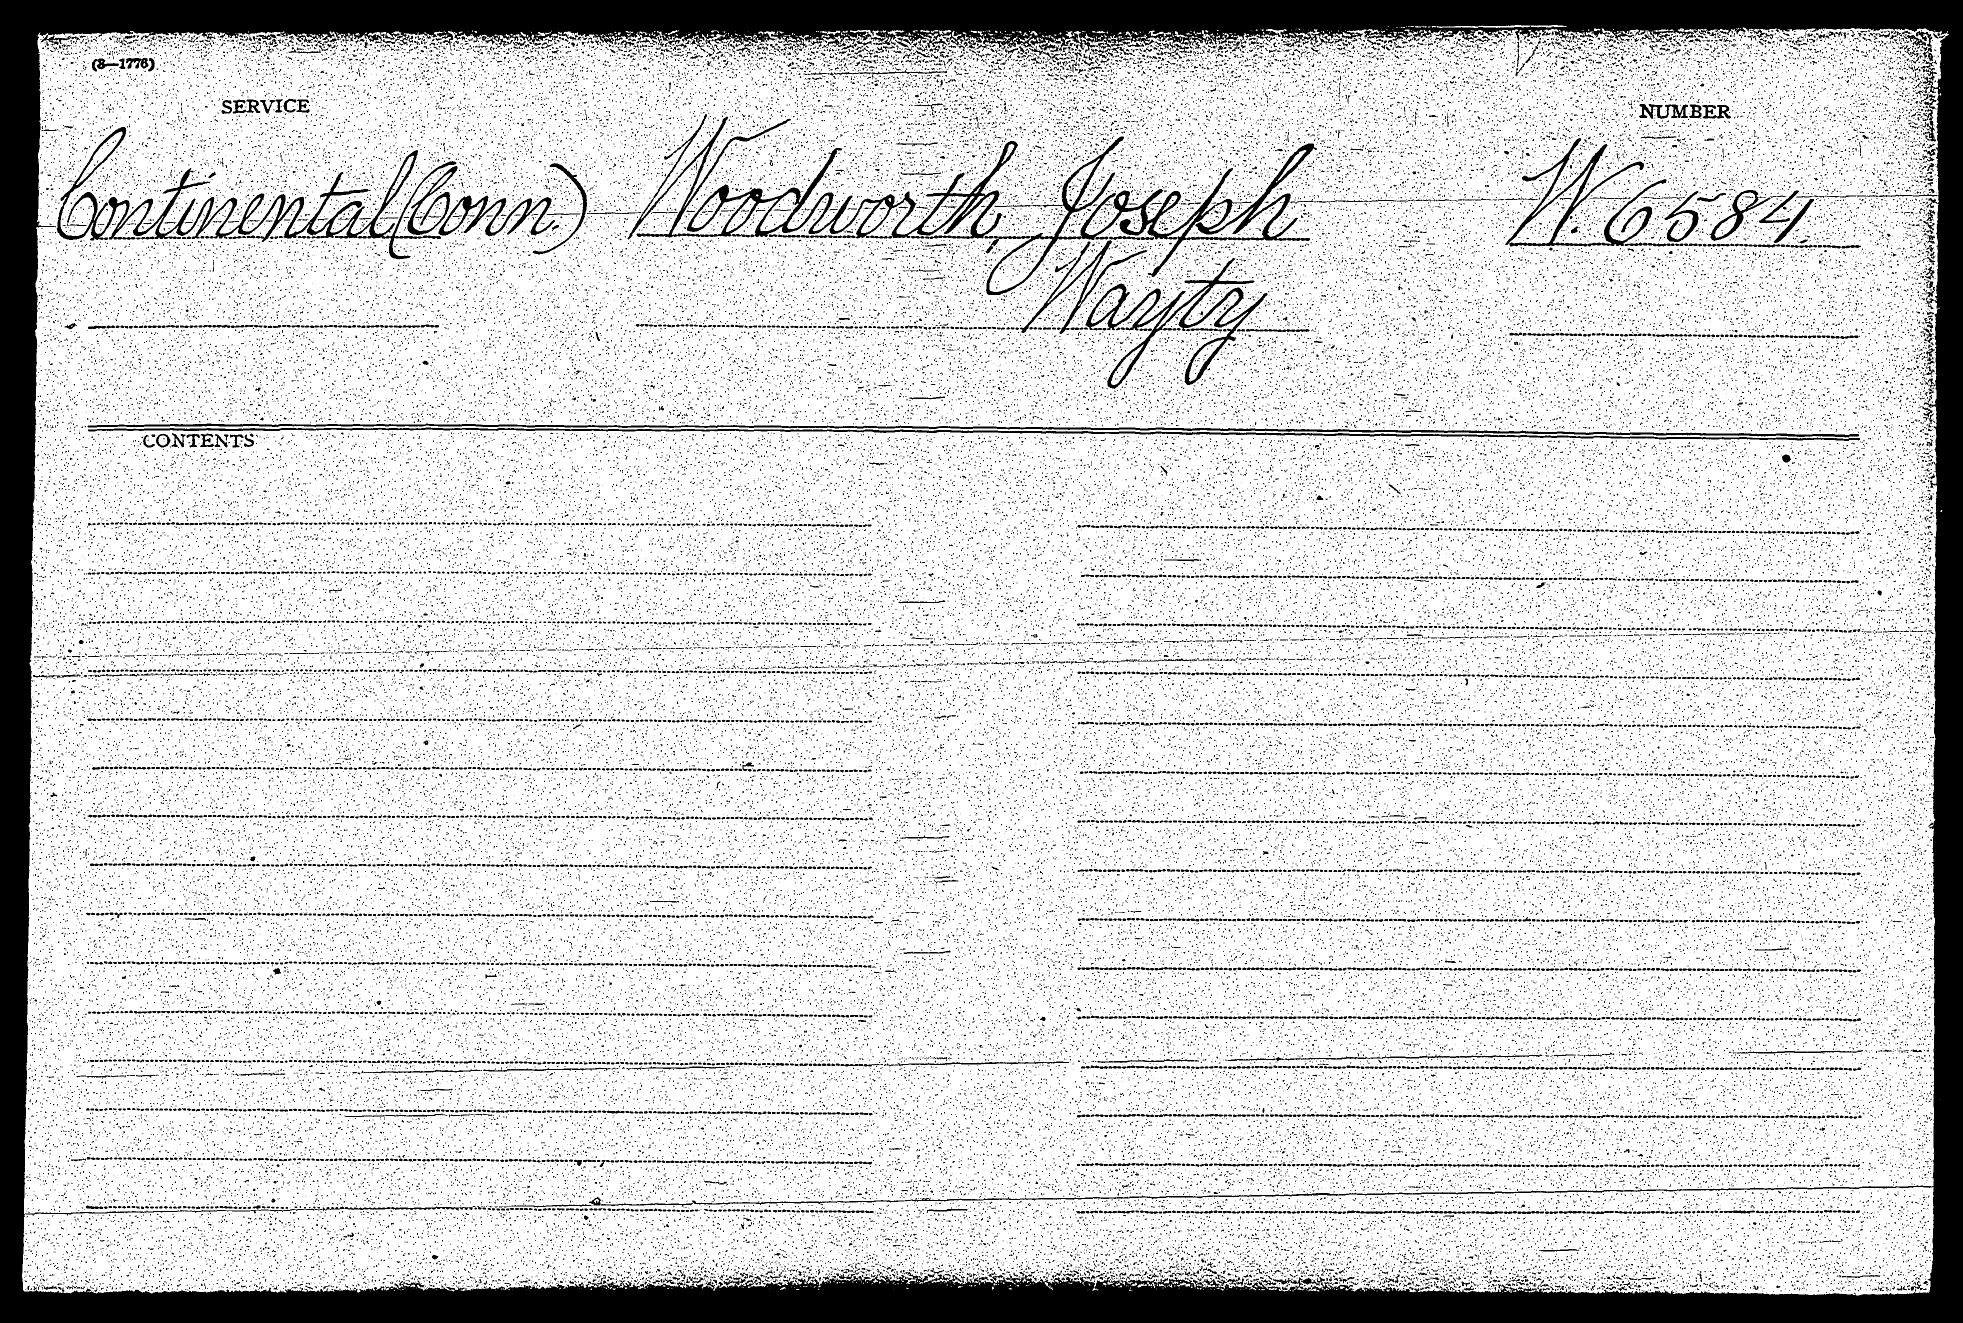 (3—1776)
SERVICE
NUMBER
Continental (Conn.) Woodworth, Joseph W. 6584.
Wayty
CONTENTS